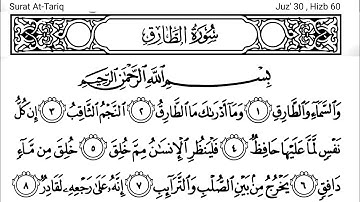 Surat At-Tariq Juz' 30 , Hizb 60
سُورَةُ الطَّارِقِ
بِسْمِ اللَّهِ الرَّحْمَٰنِ الرَّحِيمِ
وَالسَّمَاءِ وَالطَّارِقِ ١ وَمَا أَدْرَىٰكَ مَا الطَّارِقُ ٢ النَّجْمُ الثَّاقِبُ ٣ إِن كُلُّ
نَفْسٍ لَّمَّا عَلَيْهَا حَافِظٌ ٤ فَلْيَنظُرِ الْإِنسَٰنُ مِمَّ خُلِقَ ٥ خُلِقَ مِن مَّاءٍ
دَافِقٍ ٦ يَخْرُجُ مِنْ بَيْنِ الصُّلْبِ وَالتَّرَائِبِ ٧ إِنَّهُ عَلَىٰ رَجْعِهِ لَقَادِرٌ ٨